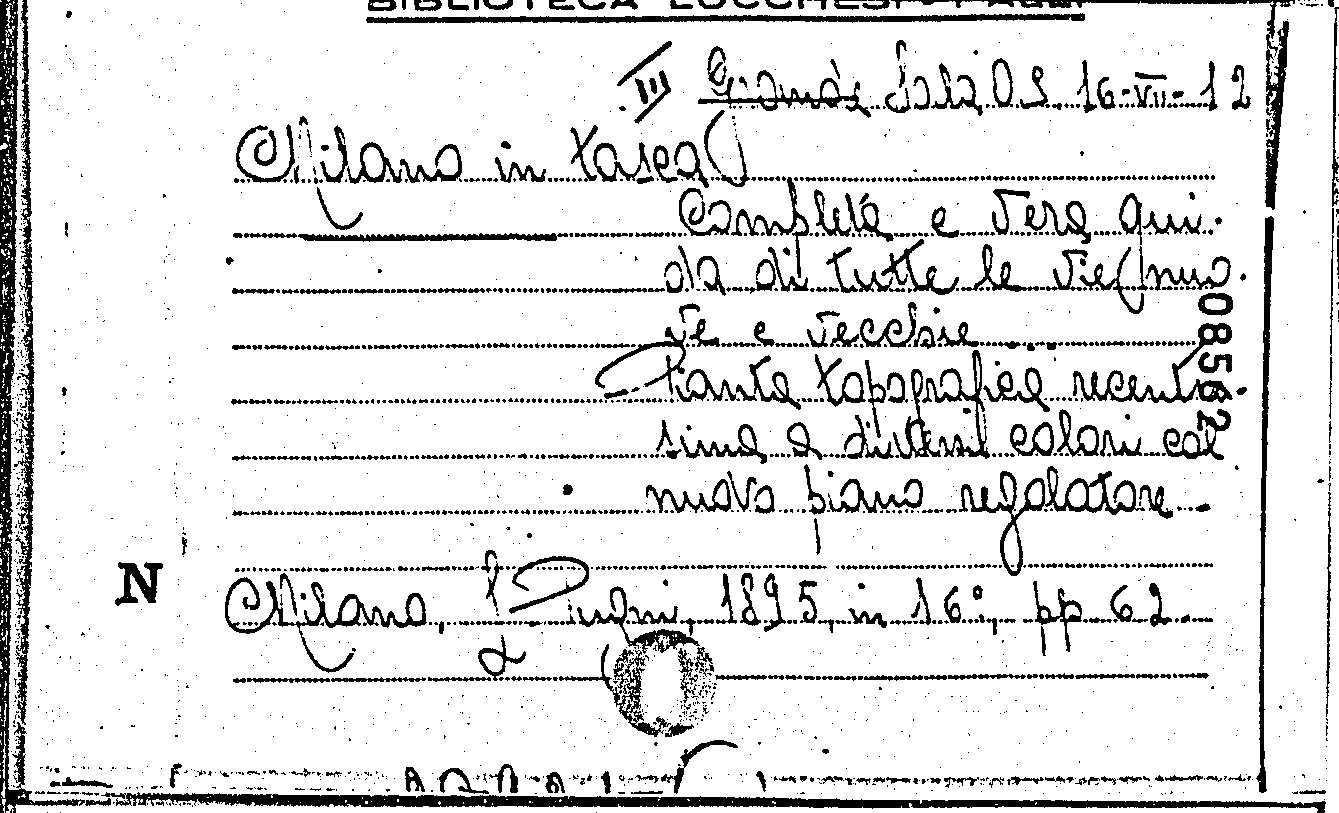 BIBLIOTECA LUCCHESI-PALLI
III Sala O.S. 16-VII-12
Milano in tasca
Completa e vera gui-
da di tutte le vie nuo-
ve e vecchie ...
Pianta topografica recentis-
sima a diversi colori col
nuovo piano regolatore -
08562
N
Milano, Pugni, 1895, in 16°, pp 62.